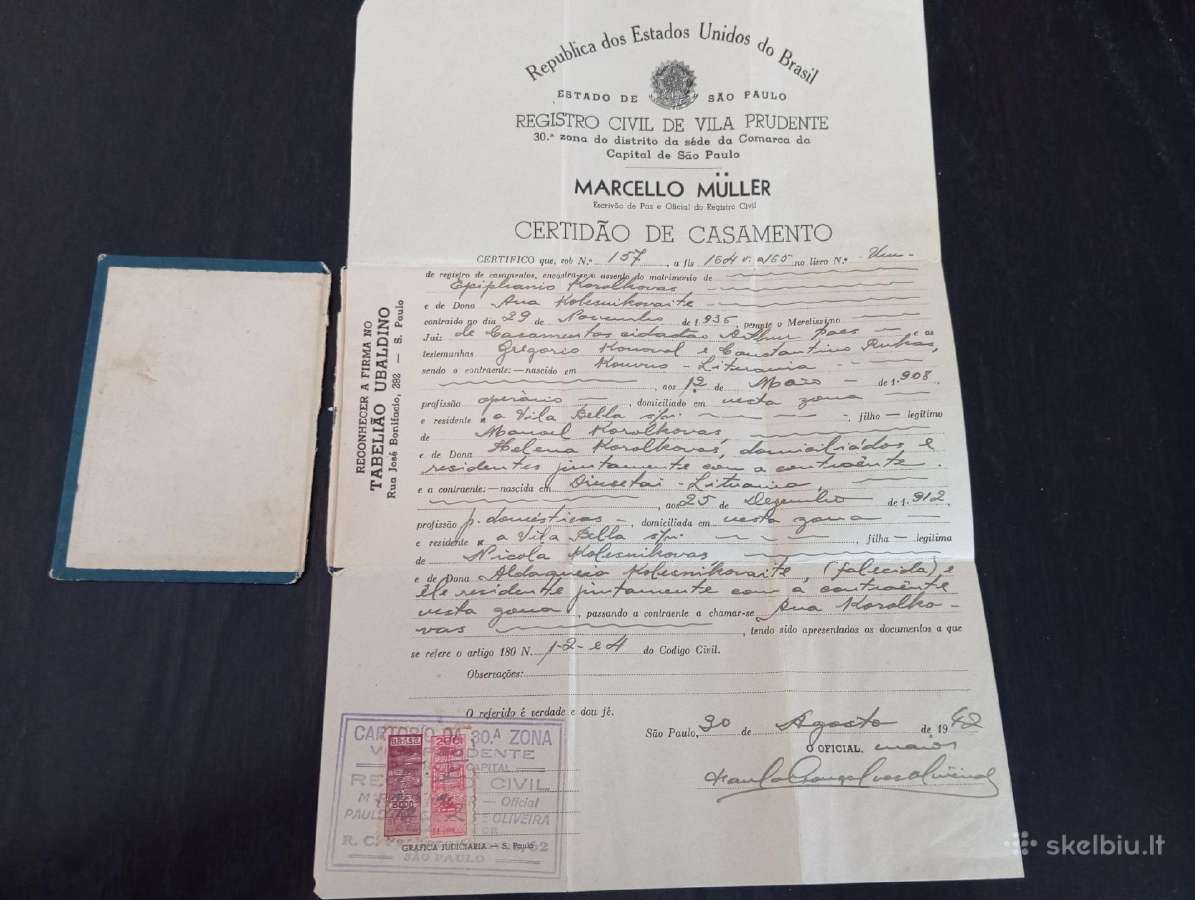 Republica dos Estados Unidos do Brasil
ESTADO DE SÃO PAULO
REGISTRO CIVIL DE VILA PRUDENTE
30.ª zona do distrito da séde da Comarca da
Capital de São Paulo
MARCELLO MÜLLER
Escrivão de Paz e Oficial do Registro Civil
CERTIDÃO DE CASAMENTO
CERTIFICO que, sob N.º 157, a fls 164 v. a 165 no livro N.º Um
de registro de casamentos, encontra-se o assento do matrimonio de
Epiphanio Korolkovas
e de Dona Ana Kolesnikovaite
contraido no dia 29 de Novembro de 1.935, perante o Meretissimo
Juiz de Casamentos cidadão Arthur Paes e as
testemunhas Gregorio Konoval e Constantino
sendo o contraente:—nascido em Lituania
aos 12 de Maio de 1.908
profissão operário, domiciliado em nesta zona
e residente a Vila Bella s/n., filho — legitimo
de Manoel Korolkovas
e de Dona Helena Korolkovas, domiciliados e
residentes juntamente com a contraénte.
e a contraente:—nascida em Lituania,
aos 25 de Dezembro de 1.912,
profissão p. domésticas, domiciliada em nesta zona
e residente a Vila Bella s/n., filha — legitima
de Nicola Kolesnikovas
e de Dona Kolesnikovaite, (falecida) e
êle residente juntamente com a contraénte
nesta zona, passando a contraente a chamar-se Ana Korolko-
vas, tendo sido apresentados os documentos a que
se refere o artigo 180 N. 1-2- e 4 do Codigo Civil.
Observações:
O referido é verdade e dou fé.
São Paulo, 30 de Agosto de 1942
O OFICIAL, maior
RECONHECER A FIRMA NO
TABELIÃO UBALDINO
Rua José Bonifacio, 292 — S. Paulo
CARTORIO DA 30.ª ZONA
CAPITAL
CIVIL
Oficial
OLIVEIRA
SÃO PAULO
BRASIL
200
GRAFICA JUDICIARIA — S. Paulo
skelbiu.lt